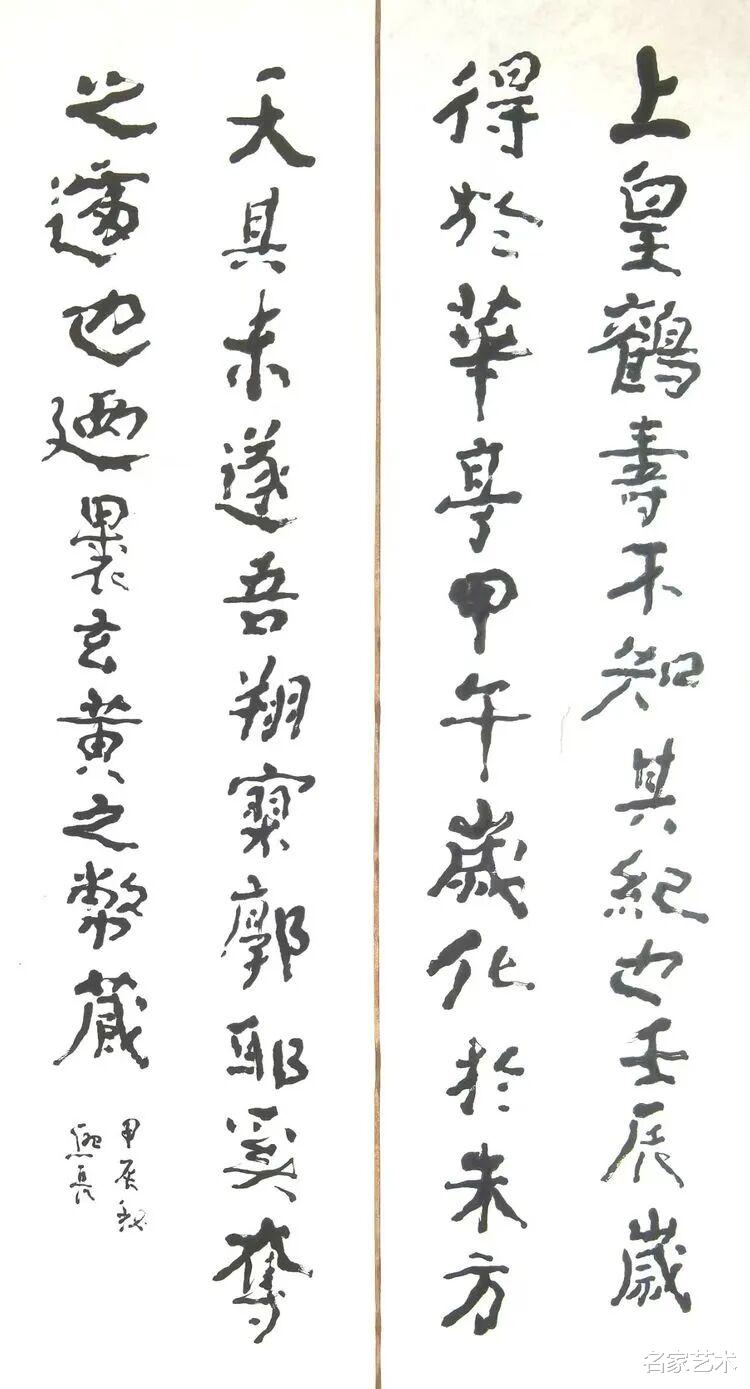 上皇鶴壽不知其紀也壬辰歲
得於華亭甲午歲化於朱方
天其未遂吾翔寥廓耶奚奪
之遽也廼裹玄黄之幣藏
甲辰秋
名家艺术